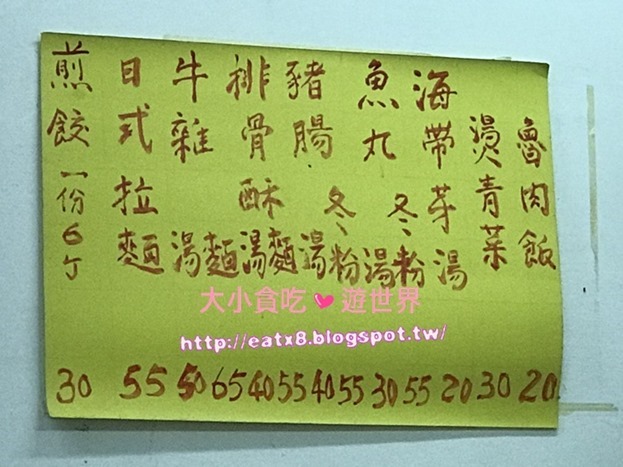 魯肉飯 20
燙青菜 30
海帶芽 湯 20
冬粉 55
魚丸 湯 30
冬粉 55
豬腸 湯 40
麵 55
排骨酥 湯 40
麵 65
牛雜 湯 50
日式拉麵 55
煎餃一份6丁 30
大小貪吃❤遊世界
http://eatx8.blogspot.tw/